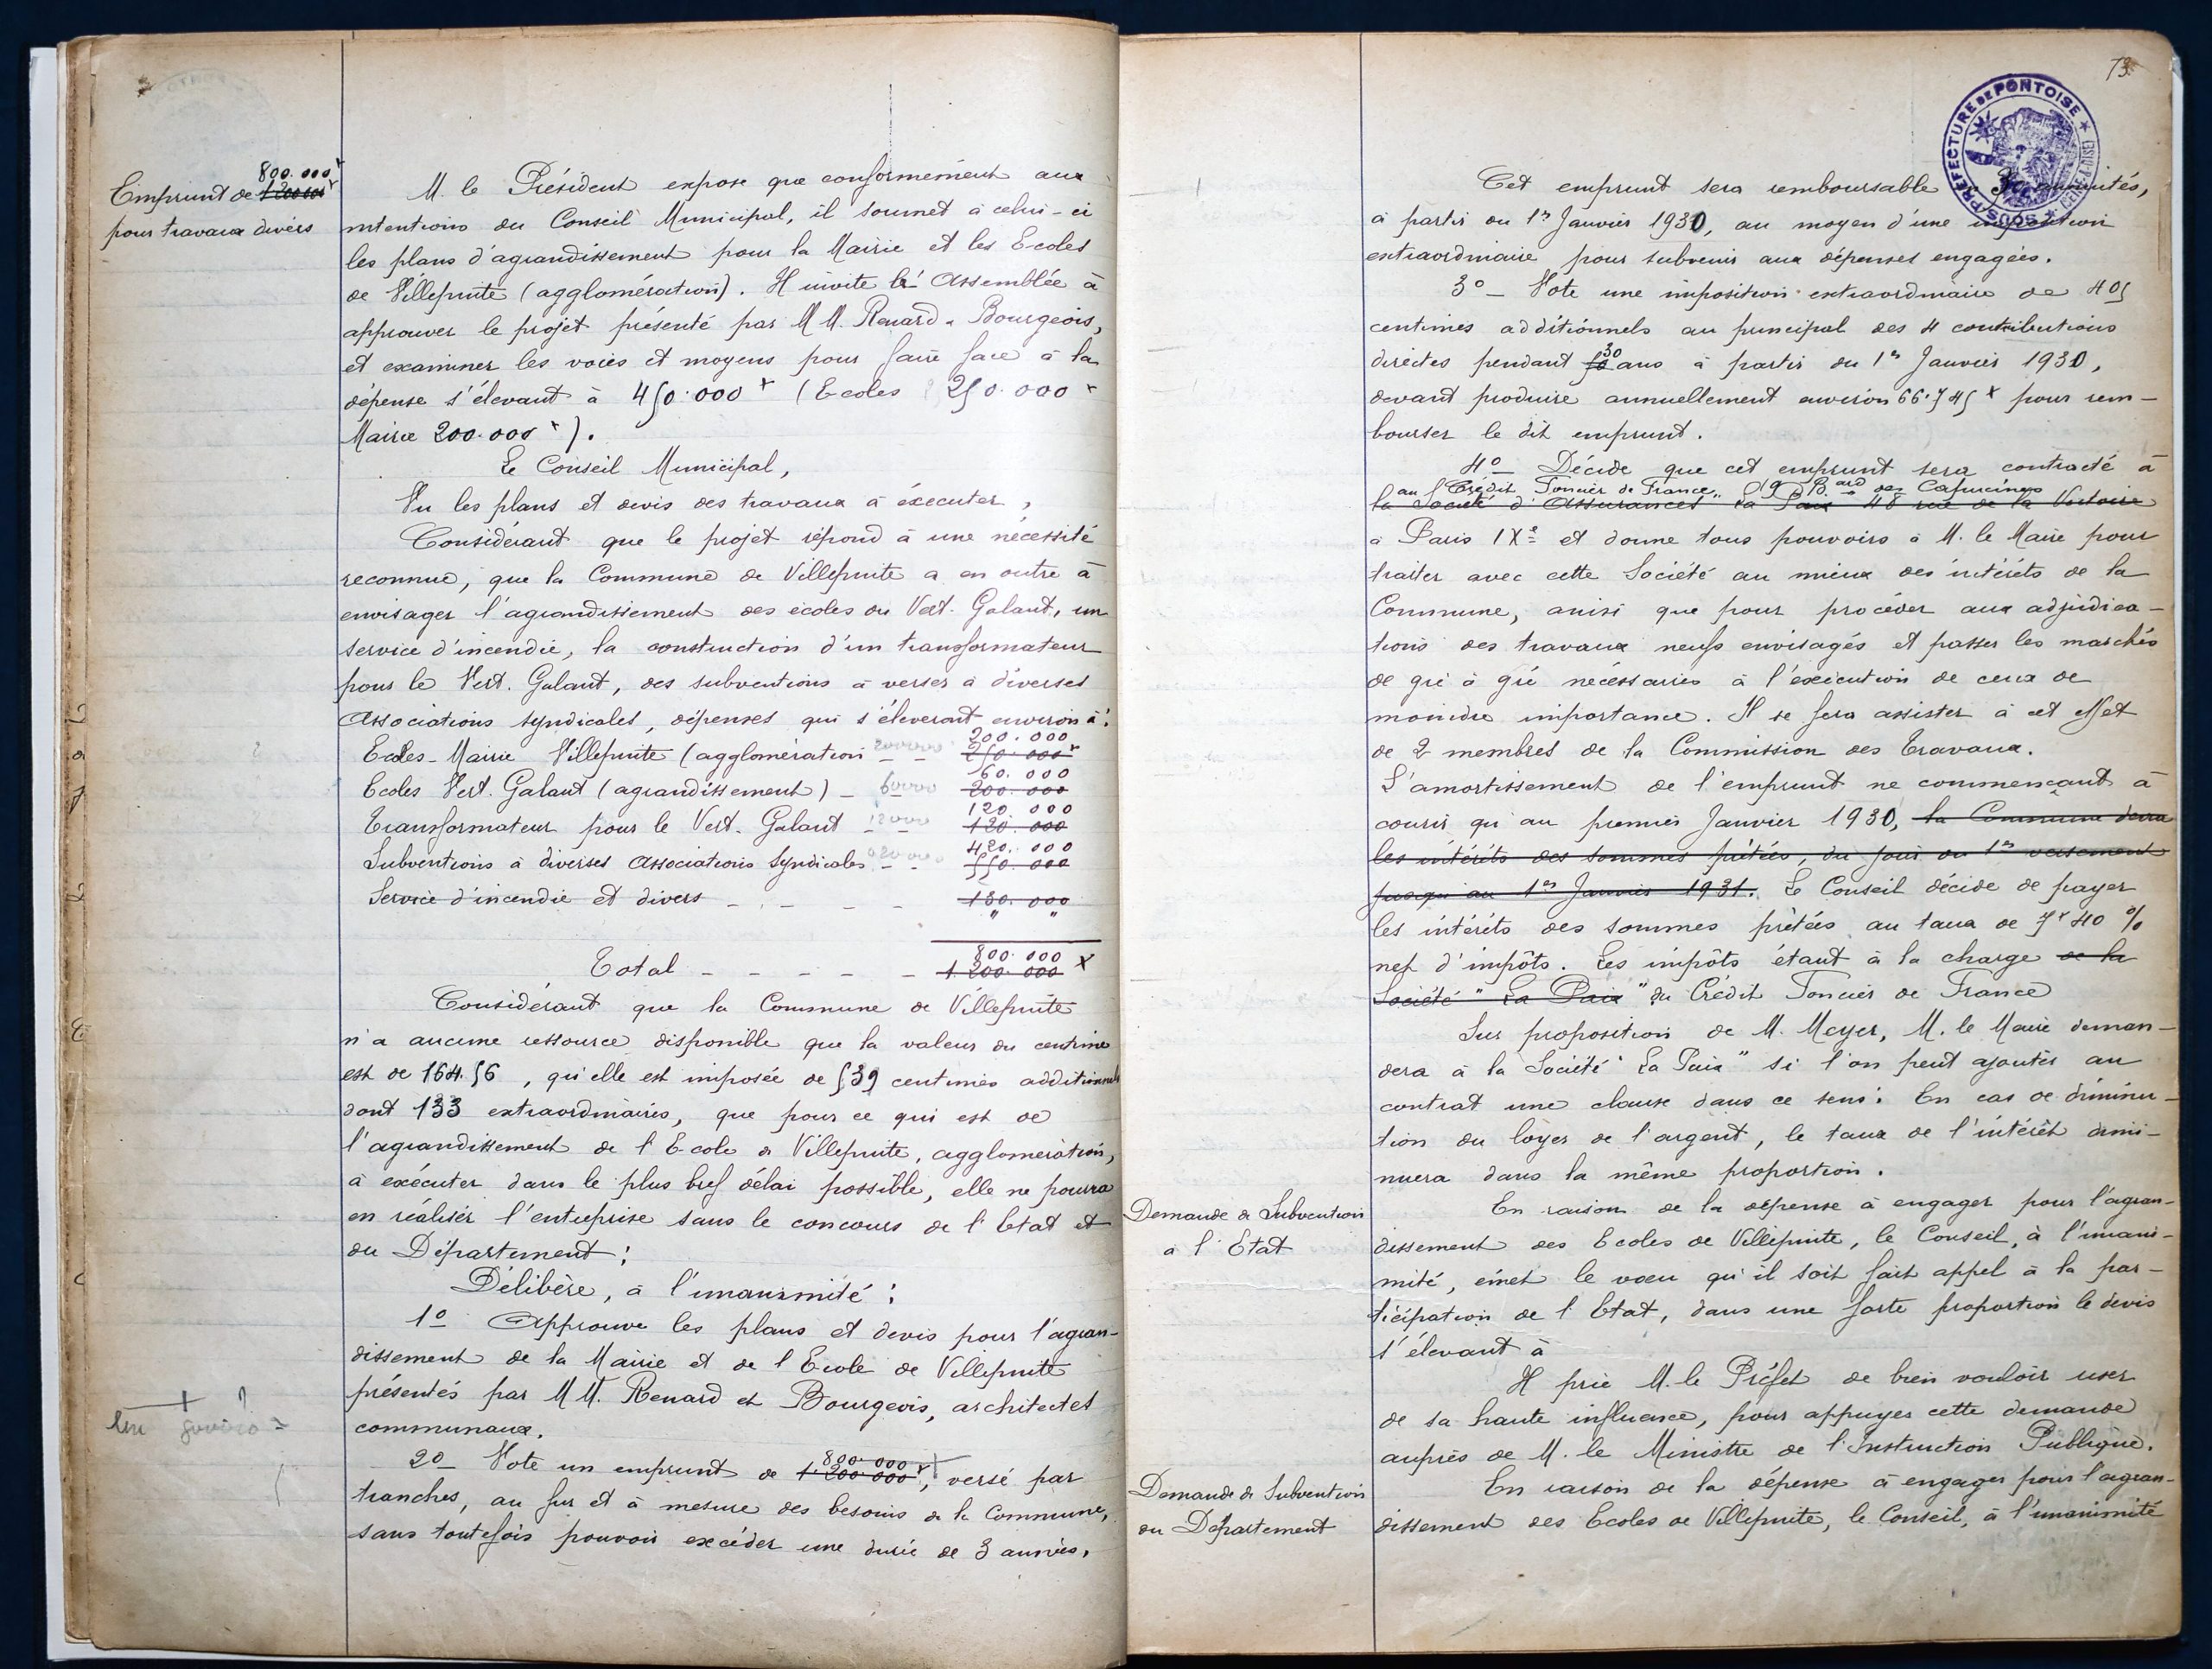 800.000
Emprunt de 1 200 000
pour travaux divers
M. le Président expose que conformément aux
intentions du Conseil Municipal, il soumet à celui-ci
les plans d'agrandissement pour la Mairie et les Ecoles
de Villepinte (agglomération). Il invite l'Assemblée à
approuver le projet présenté par M M. Renard & Bourgeois,
et examiner les voies et moyens pour faire face à la
dépense s'élevant à 450.000 f (Ecoles 250.000 f
Mairie 200.000 f).
Le Conseil Municipal,
Vu les plans et devis des travaux à éxecuter,
Considérant que le projet répond à une nécessité
reconnue, que la Commune de Villepinte a en outre à
envisager l'agrandissement des écoles du Vert-Galant, un
service d'incendie, la construction d'un transformateur
pour le Vert-Galant, des subventions à verser à diverses
Associations syndicales, dépenses qui s'éleveront environ à :
200.000
Ecoles-Mairie Villepinte (agglomération 200000 - - 250.000 f
60.000
Ecoles Vert-Galant (agrandissement) - 60000 200.000
120 000
Transformateur pour le Vert-Galant 12000 - - 120.000
420.000
Subventions à diverses Associations Syndicales 420000 - - 550.000
Service d'incendie et divers - - - - 130.000
" "
800.000
Total - - - - - 1.200.000 f
Considérant que la Commune de Villepinte
n'a aucune ressource disponible que la valeur du centime
est de 164.56, qu'elle est imposée de 539 centimes additionnels
dont 133 extraordinaires, que pour ce qui est de
l'agrandissement de l'Ecole de Villepinte, agglomération,
à éxécuter dans le plus bref délai possible, elle ne pourra
en réaliser l'entreprise sans le concours de l'Etat et
du Département :
Délibère, à l'unanimité :
1º Approuve les plans et devis pour l'agran-
dissement de la Mairie et de l'Ecole de Villepinte
présentés par M M. Renard et Bourgeois, architectes
communaux.
800.000
2º - Vote un emprunt de 1.200.000 f, versé par
tranches, au fur et à mesure des besoins de la Commune,
sans toutefois pouvoir excéder une durée de 3 années.
73
SOUS-PRÉFECTURE DE PONTOISE
Cet emprunt sera remboursable en 30 annuités,
à partir du 1er Janvier 1930, au moyen d'une imposition
extraordinaire pour subvenir aux dépenses engagées.
3º - Vote une imposition extraordinaire de 405
centimes additionnels au principal des 4 contributions
30
directes pendant 50 ans à partir du 1er Janvier 1930,
devant produire annuellement environ 66.745 f pour rem-
bourser le dit emprunt.
4º - Décide que cet emprunt sera contracté à
au Crédit Foncier de France, 19 Bard des Capucines
la Société d'Assurances La Paix 48 rue de la Victoire
à Paris IXe et donne tous pouvoirs à M. le Maire pour
traiter avec cette Société au mieux des intérêts de la
Commune, ainsi que pour procéder aux adjudica-
tions des travaux neufs envisagés et passer les marchés
de gré à gré nécessaires à l'éxécution de ceux de
moindre importance. Il se fera assister à cet effet
de 2 membres de la Commission des Travaux.
L'amortissement de l'emprunt ne commençant à
courir qu'au premier Janvier 1930, la Commune devra
les intérêts des sommes prêtées, du jour du 1er versement
jusqu'au 1er Janvier 1931. Le Conseil décide de payer
les intérêts des sommes prêtées au taux de 7 f 40 %
net d'impôts. Les impôts étant à la charge de la
Société "La Paix" du Crédit Foncier de France
Sur proposition de M. Meyer, M. le Maire deman-
dera à la Société "La Paix" si l'on peut ajouter au
contrat une clause dans ce sens : En cas de diminu-
tion du loyer de l'argent, le taux de l'intérêt dimi-
nuera dans la même proportion.
Demande de Subvention
à l'Etat
En raison de la dépense à engager pour l'agran-
dissement des Ecoles de Villepinte, le Conseil, à l'unani-
mité, émet le voeu qu'il soit fait appel à la par-
ticipation de l'Etat, dans une forte proportion le devis
s'élevant à
Il prie M. le Préfet de bien vouloir user
de sa haute influence, pour appuyer cette demande
auprès de M. le Ministre de l'Instruction Publique.
Demande de Subvention
au Département
En raison de la dépense à engager pour l'agran-
dissement des Ecoles de Villepinte, le Conseil, à l'unanimité